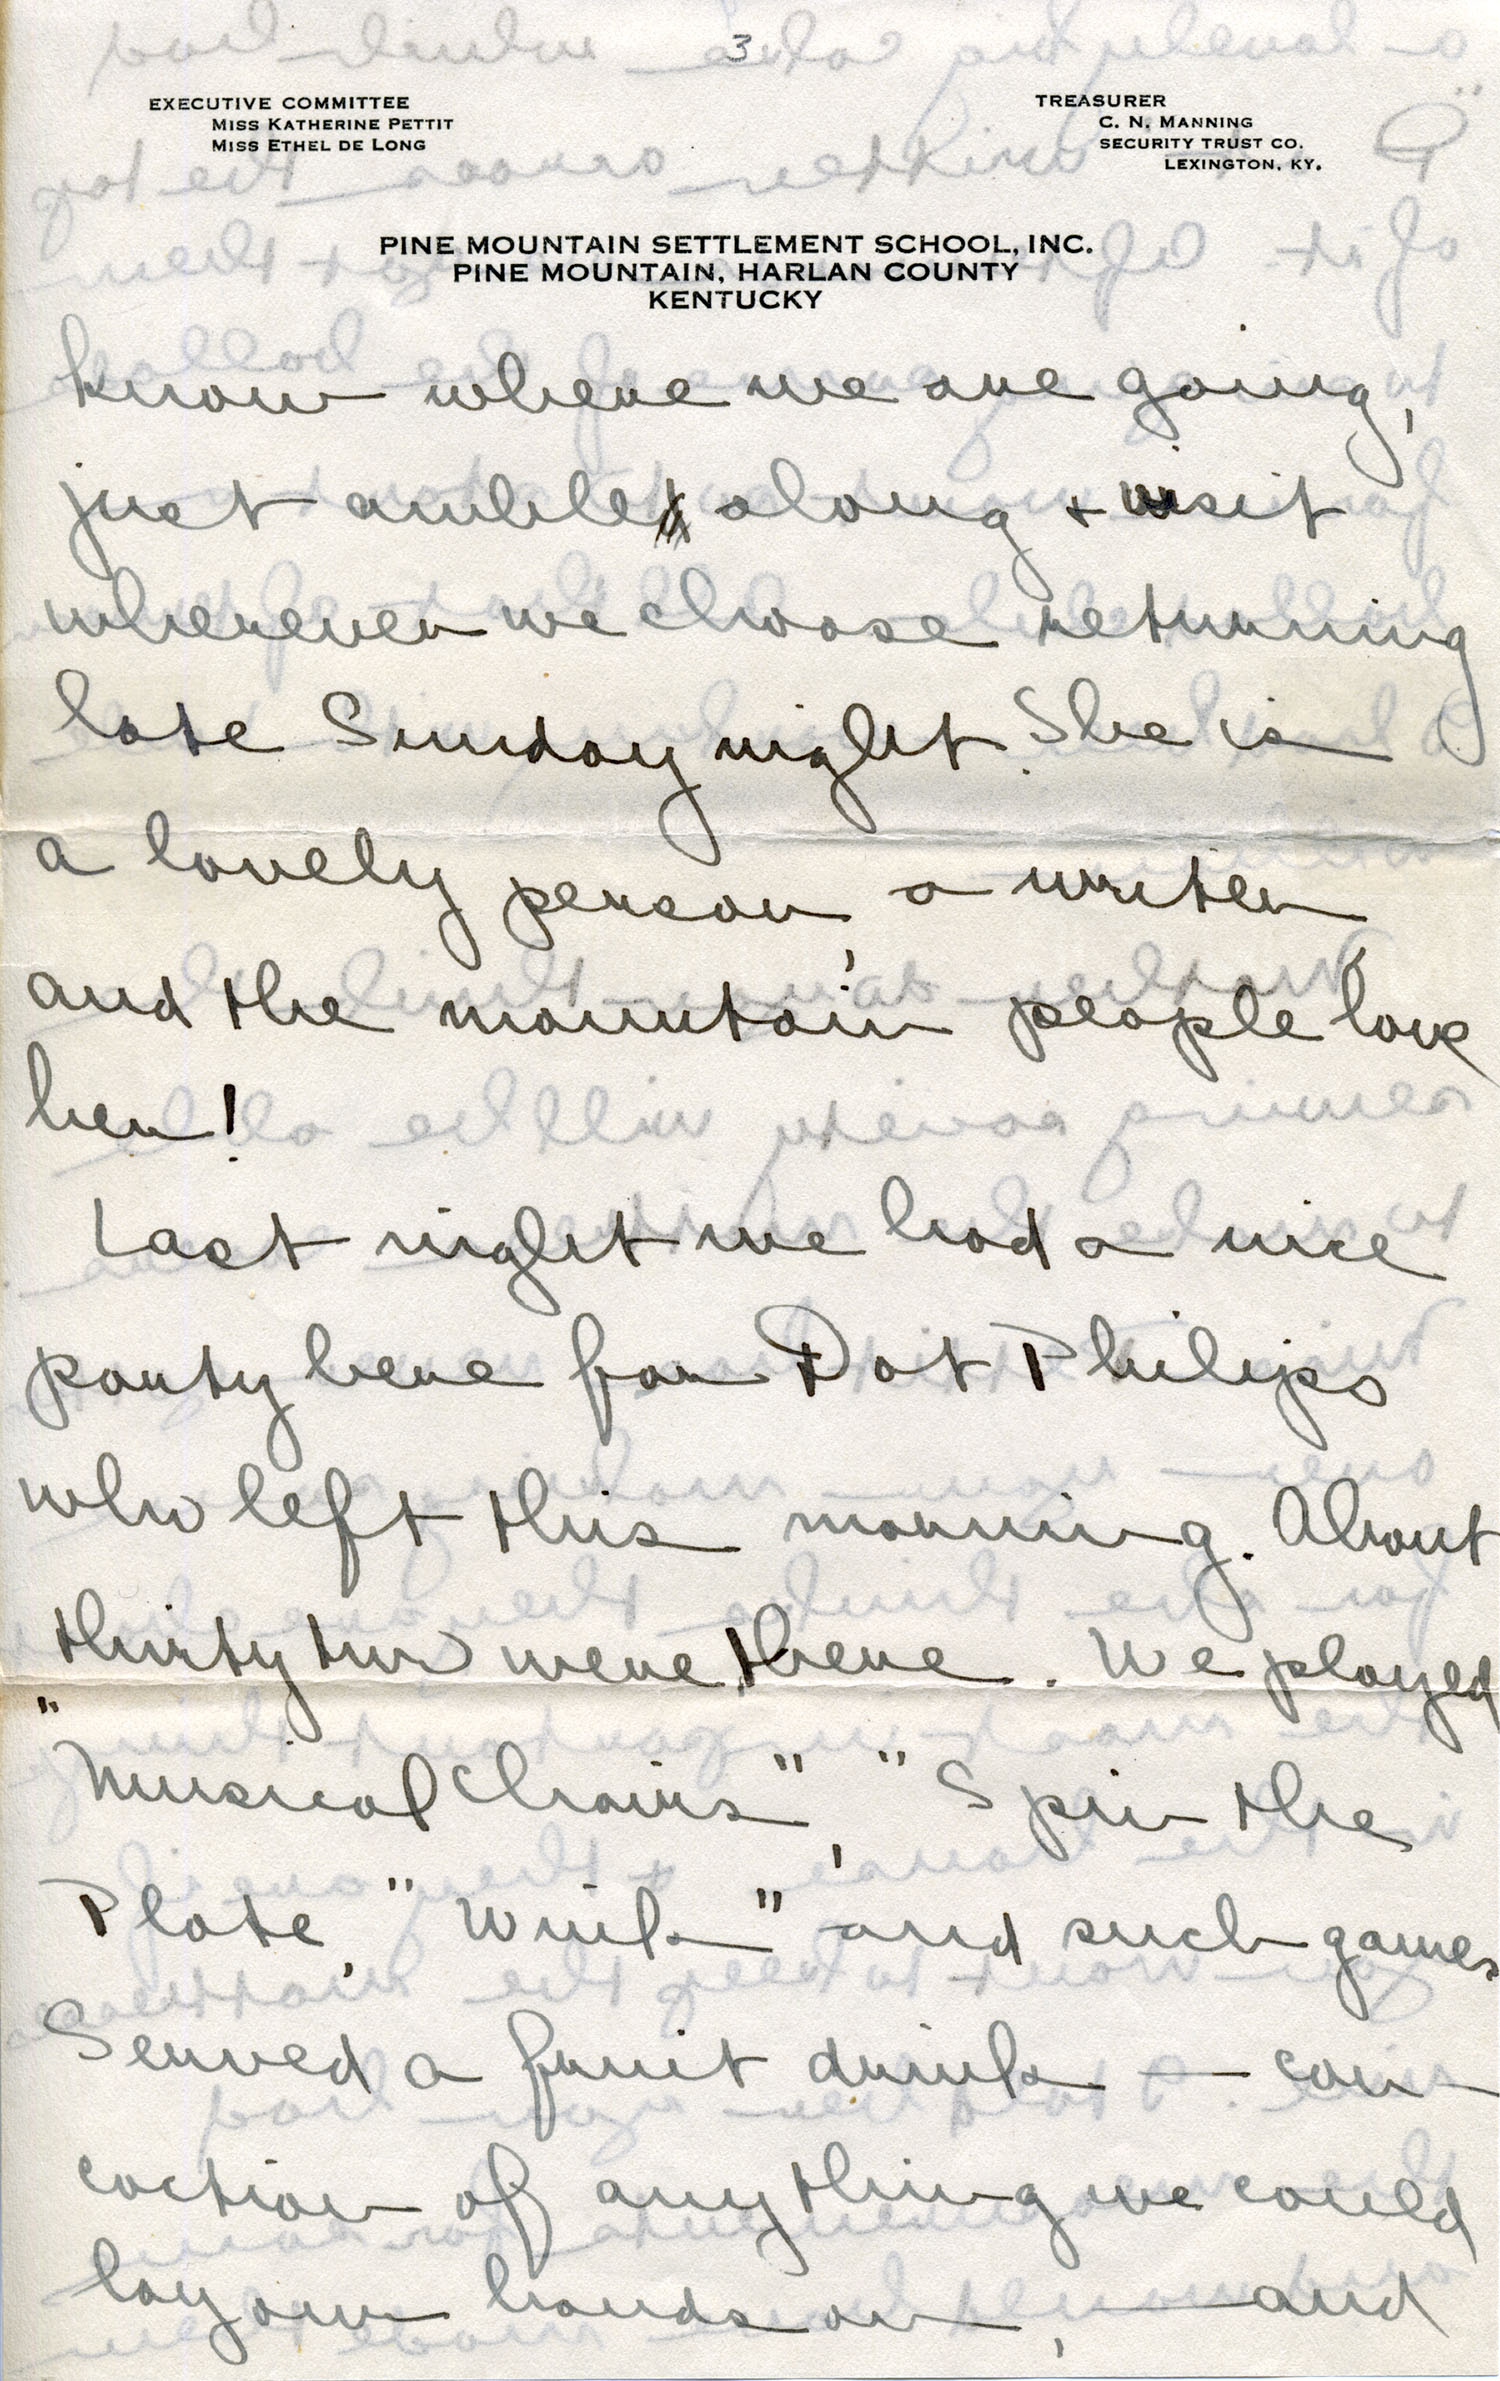 3
EXECUTIVE COMMITTEE
MISS KATHERINE PETTIT
MISS ETHEL DE LONG
TREASURER
C. N. MANNING
SECURITY TRUST CO.
LEXINGTON, KY.
PINE MOUNTAIN SETTLEMENT SCHOOL, INC.
PINE MOUNTAIN, HARLAN COUNTY
KENTUCKY
know where we are going,
just amble along + visit
wherever we choose returning
late Sunday night. She is
a lovely person, a writer,
and the mountain people love
her!
Last night we had a nice
party here for Dot Philips
who left this morning. About
thirty two were there. We played
"Musical Chairs", "Spin the
Plate," "Wink" and such games
Served a fruit drink — con-
coction of anything we could
lay our hands on, — and